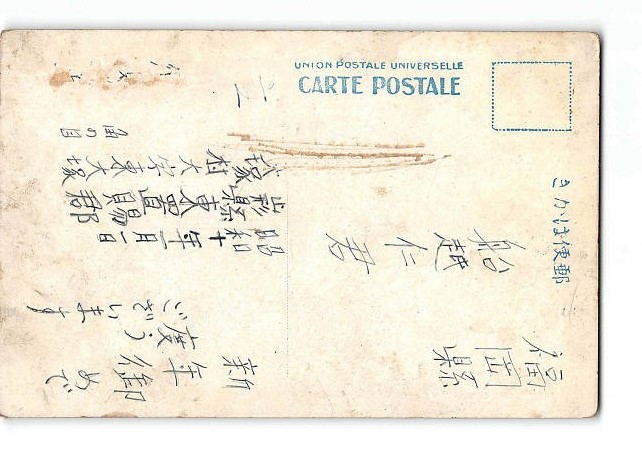 UNION POSTALE UNIVERSELLE
CARTE POSTALE
きかは便郵
福岡縣
船越仁君
新年御めで
度う
ございます
昭和十年一月一日
山形縣東置賜郡
塚村大字東大塚